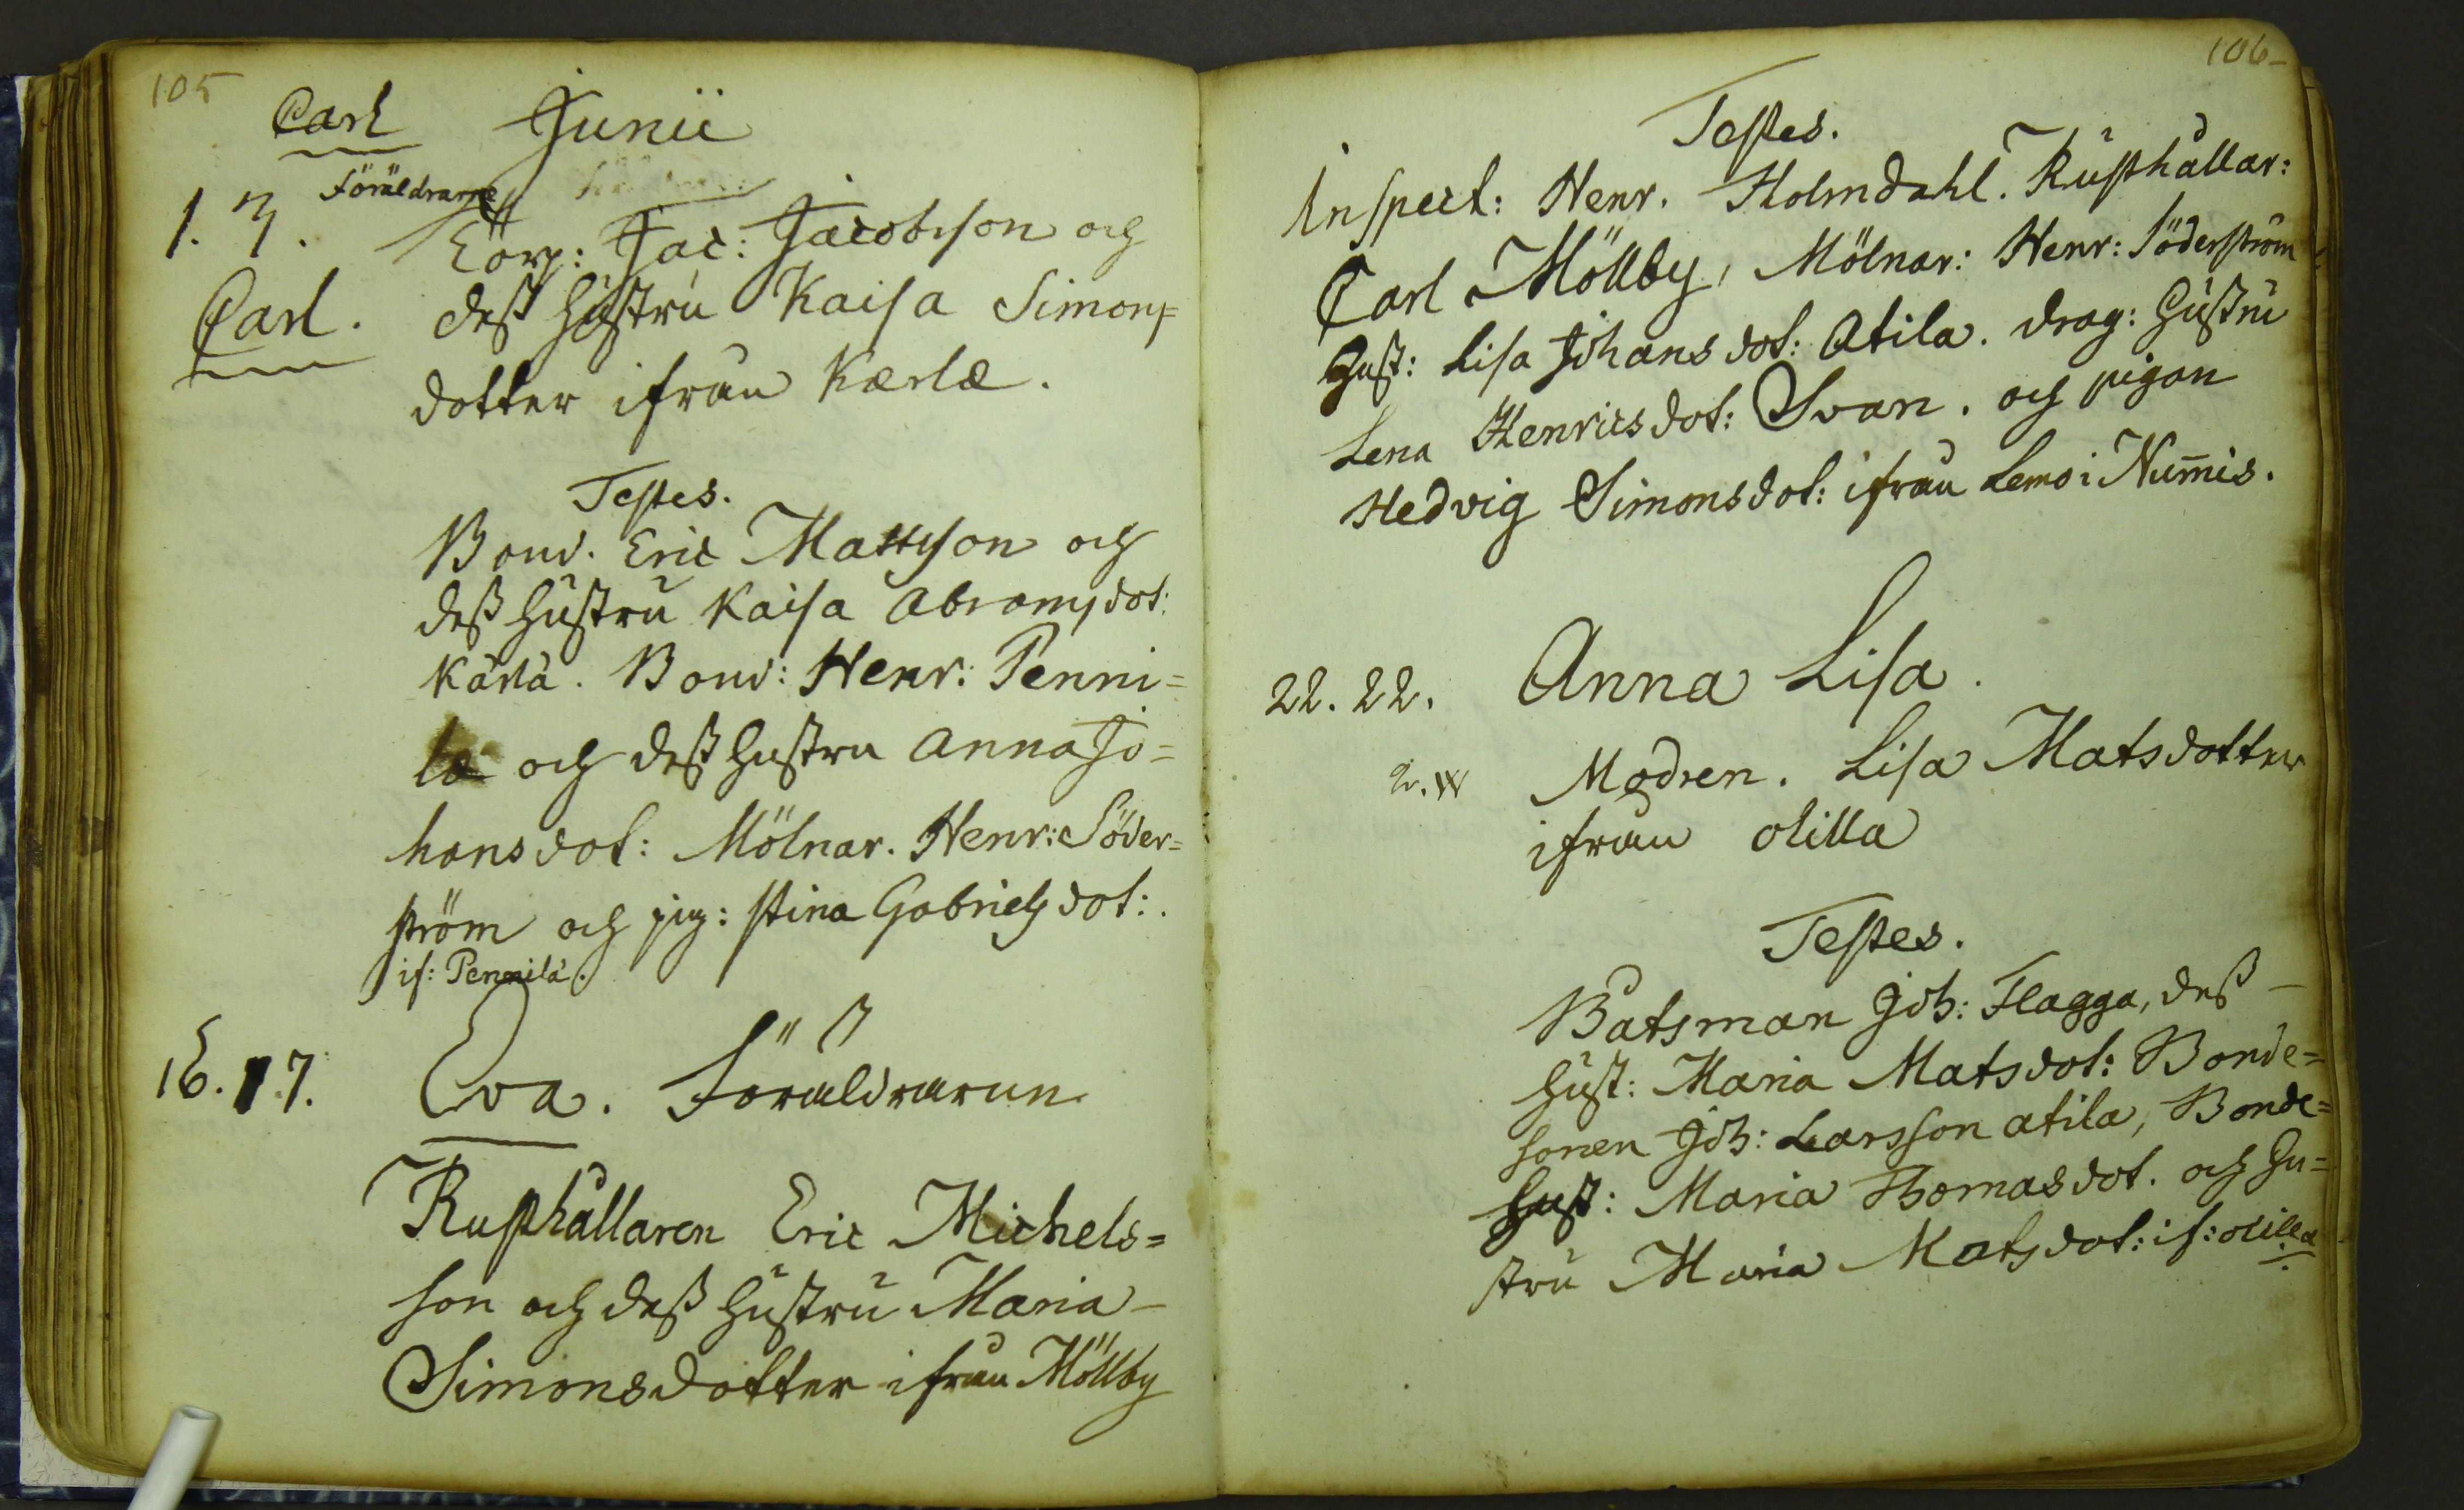 105
Carl Junii
Föräldrarne
1. 7. Corp: Jac: Jacobsson och
Carl. dess Hustru Kaisa Simons=
dotter ifrån Kærlæ.
Testes.
Bond. Eric Mattsson och
dess Hustru Kaisa Abramsdot:
Kärlä. Bond: Henr: Penni=
læ och dess Hustru Anna Jo=
hansdot: Mölnar. Henr: Söder=
ström och pig: Stina Gabrielsdot:.
if: Pennilä.
16. 17. Eva. Föräldrarne
Rusthållaren Eric Michels=
son och dess Hustru Maria
Simonsdotter ifrån Möllby
106
Testes.
Inspect: Henr. Holmdahl. Rusthållar:
Carl Möllby, Mölnar: Henr: Söderström
Hust: Lisa Johansdot: Atila. drag: Hustru
Lena Henricsdot: Svan. och pigan
Hedvig Simonsdot: ifrån Lemo i Num̄is.
22. 22. Anna Lisa.
Modren. Lisa Matsdotter
ifrån olilla
Testes.
Båtsman Joh: Flagga, dess
Hust: Maria Matsdot: Bonde=
sonen Joh: Larsson atila, Bonde=
Hust: Maria Thomasdot. och Hu=
stru Maria Matsdot: if: olilla